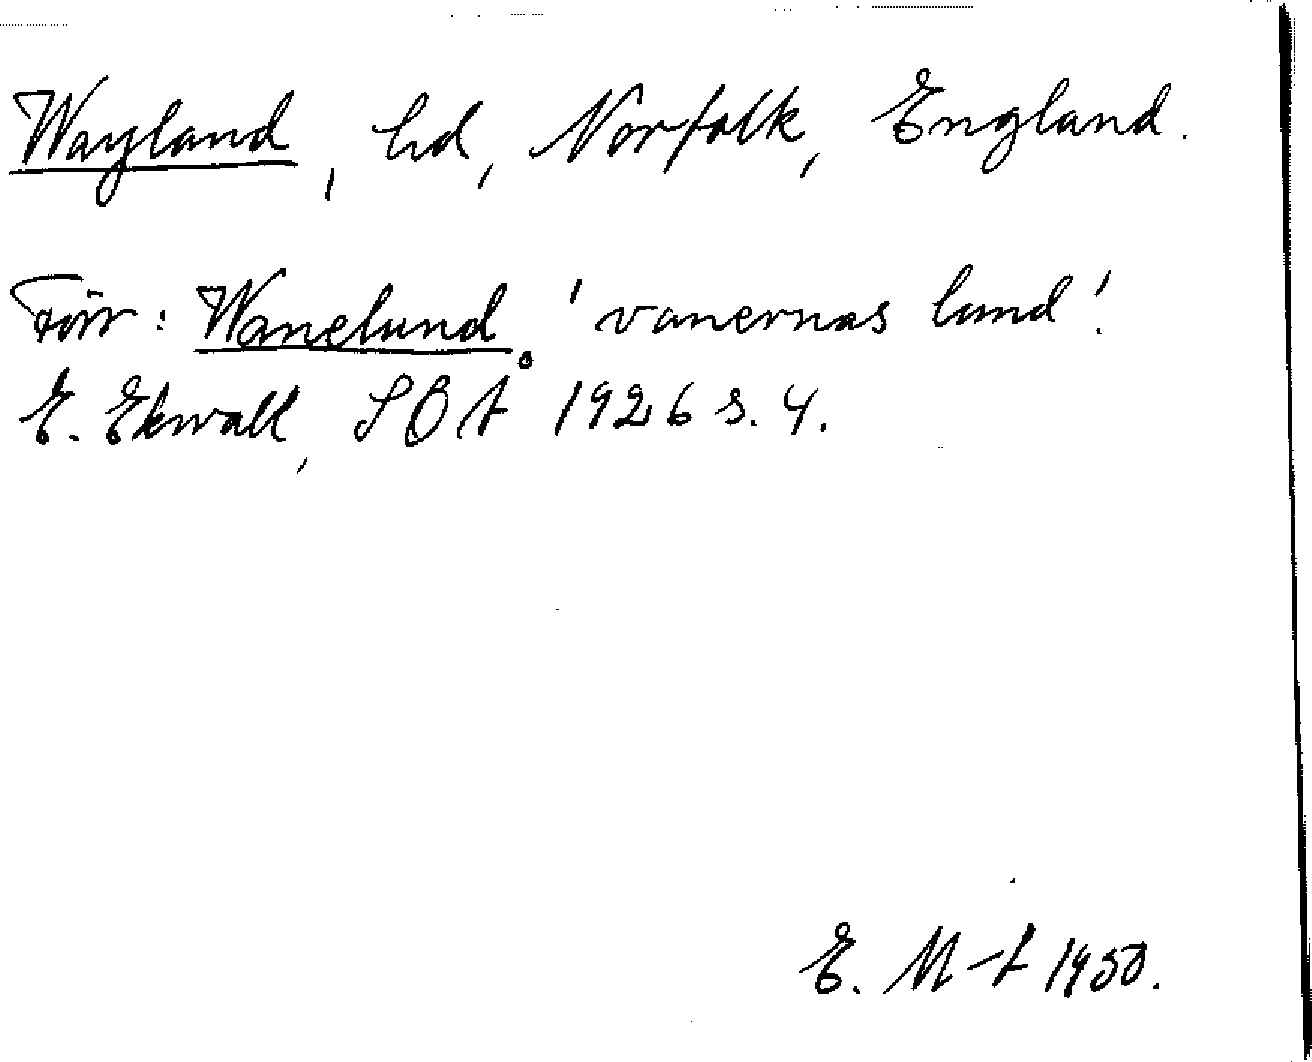 Wayland, hd, Norfolk, England.
Förr: Wanelund. 'vanernas lund'.
E. Ekwall, SOÅ 1926 s. 4.
E. M-t 1950.